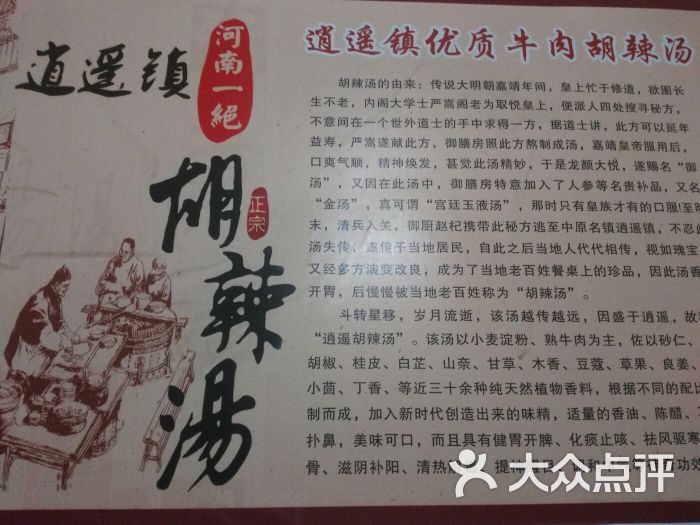 逍遥镇
河南一絕
正宗
胡辣湯
逍遥镇优质牛肉胡辣汤
胡辣汤的由来：传说大明朝嘉靖年间，皇上忙于修道，欲图长
生不老，内阁大学士严嵩阁老为取悦皇上，便派人四处搜寻秘方，
不意间在一个世外道士的手中求得一方，据道士讲，此方可以延年
益寿，严嵩遂献此方，御膳房照此方熬制成汤，嘉靖皇帝服用后，
口爽气顺，精神焕发，甚觉此汤精妙，于是龙颜大悦，遂赐名“御
汤”，又因在此汤中，御膳房特意加入了人参等名贵补品，又名
“金汤”，真可谓“宫廷玉液汤”，那时只有皇族才有的口服!至明
末，清兵入关，御厨赵杞携带此秘方逃至中原名镇逍遥镇，不忍此
汤失传，遂传于当地居民，自此之后当地人代代相传，视如瑰宝
又经多方演变改良，成为了当地老百姓餐桌上的珍品，因此汤香
开胃，后慢慢被当地老百姓称为“胡辣汤”。
斗转星移，岁月流逝，该汤越传越远，因盛于逍遥，故
“逍遥胡辣汤”。该汤以小麦淀粉、熟牛肉为主，佐以砂仁、
胡椒、桂皮、白芷、山奈、甘草、木香、豆蔻、草果、良姜、
小茴、丁香、等近三十余种纯天然植物香料，根据不同的配比
制而成，加入新时代创造出来的味精，适量的香油、陈醋、
扑鼻，美味可口，而且具有健胃开脾、化痰止咳、祛风驱寒
骨、滋阴补阳、清热
功效
大众点评